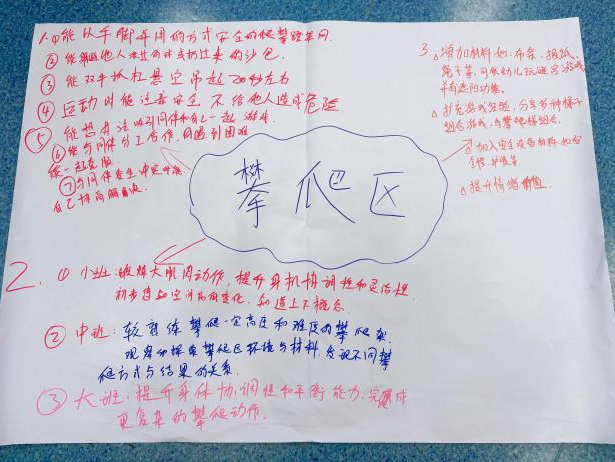 1. ①能以手脚并用的方式安全的爬攀登架网.
②能躲避他人滚过来的球或扔过来的沙包
③能双手抓杠悬空吊起20秒左右
④运动时能注意安全,不给他人造成危险
⑤能想办法吸引同伴和自己一起游戏
⑥能与同伴分工合作,遇到困难
能一起克服
⑦与同伴发生冲突时能
自己协商解决
攀爬区
3. 增加材料如:布条、报纸、
绳子等,可供幼儿玩
并
扩充游戏经验,分享多种梯子
组合游戏,与攀爬梯组合.
加入安全防护材料,如
护膝等
提升情绪价值
2. ①小班:锻炼大肌肉动作,提升身机协调性和灵活性.
初步感知空间高度变化,知道上下概念.
②中班:较熟练攀爬一定高度和难度的攀爬架.
观察和探索攀爬区环境与材料,发现不同攀
爬方式与结果的关系.
③大班:提升身体协调性和平衡能力.完成
更复杂的攀爬动作.